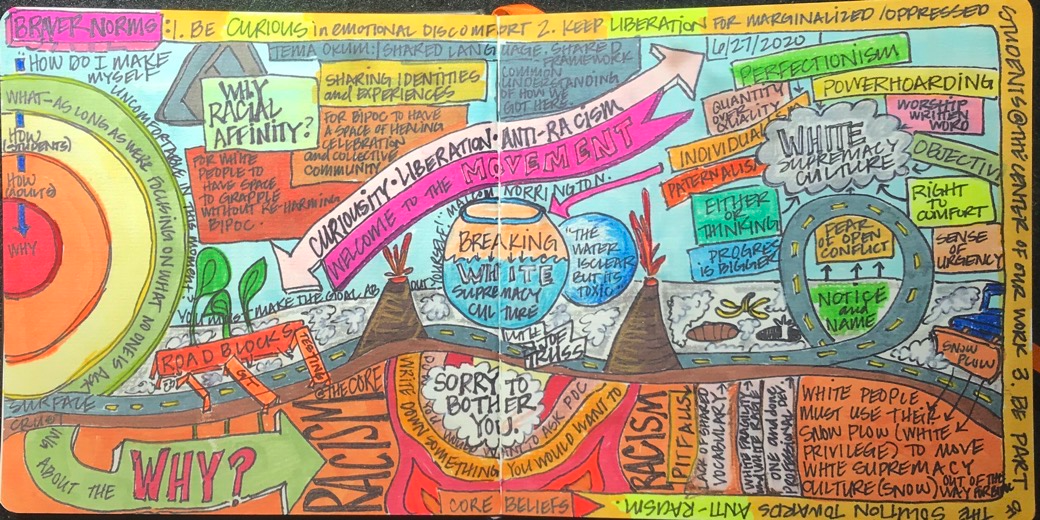 BRAVER NORMS: 1. BE CURIOUS in EMOTIONAL DISCOMFORT 2. KEEP LIBERATION FOR MARGINALIZED /OPPRESSED
STUDENTS @ the CENTER OF OUR WORK 3. BE PART OF
THE SOLUTION TOWARDS ANTI-RACISM.
HOW DO I MAKE
MYSELF
UNCOMFORTABLE IN THIS MOMENT?
WHAT-AS LONG AS WE'RE FOCUSING ON WHAT NO ONE IS
HOW
(STUDENTS)
HOW
(ADULTS)
WHY
TEMA OKUM: SHARED LANGUAGE. SHARED
FRAMEWORK
COMMON
UNDERSTANDING
OF HOW WE
GOT HERE.
6/27/2020
WHY
RACIAL
AFFINITY?
SHARING IDENTITIES
and EXPERIENCES
FOR BIPOC TO HAVE
A SPACE OF HEALING
CELEBRATION
and COLLECTIVE
COMMUNITY
FOR WHITE
PEOPLE TO
HAVE SPACE
TO GRAPPLE
WITHOUT RE-HARMING
BIPOC.
CURIOSITY·LIBERATION·ANTI-RACISM
WELCOME TO THE MOVEMENT
NORRINGTON.
MAKE THE GOAL
YOURSELF."
BREAKING
WHITE
SUPREMACY
CULTURE
WITH
JOE
TRUSS
"THE
WATER
IS CLEAR
BUT ITS
TOXIC"
PERFECTIONISM
POWERHOARDING
QUANTITY
OVER
QUALITY
WORSHIP
WRITTEN
WORD
INDIVIDUALIS
PATERNALIS
WHITE
SUPREMACY
CULTURE
OBJECTIVI
EITHER
OR
THINKING
RIGHT
TO
COMFORT
PROGRES
IS BIGGER
SENSE
OF
URGENCY
FEAR
OF OPEN
CONFLICT
NOTICE
and
NAME
SNOW
PLOW
ROAD BLOCKS
TESTING
SURFACE
CRUST
ABOUT THE
WHY?
@ THE CORE
RACISM
SORRY TO
BOTHER
YOU.
SOMETHING YOU WOULD WANT TO
ASK POC
CORE BELIEFS
RACISM
PITFALLS
LACK OF SHARED
VOCABULARY
WHITE FRAGILITY
and WHITE RAGE
ONE and DONE
PROFESSIONAL DEV.
WHITE PEOPLE
MUST USE THEIR
SNOW PLOW (WHITE
PRIVILEGE) TO MOVE
WHITE SUPREMACY
CULTURE (SNOW) OUT OF THE
WAY